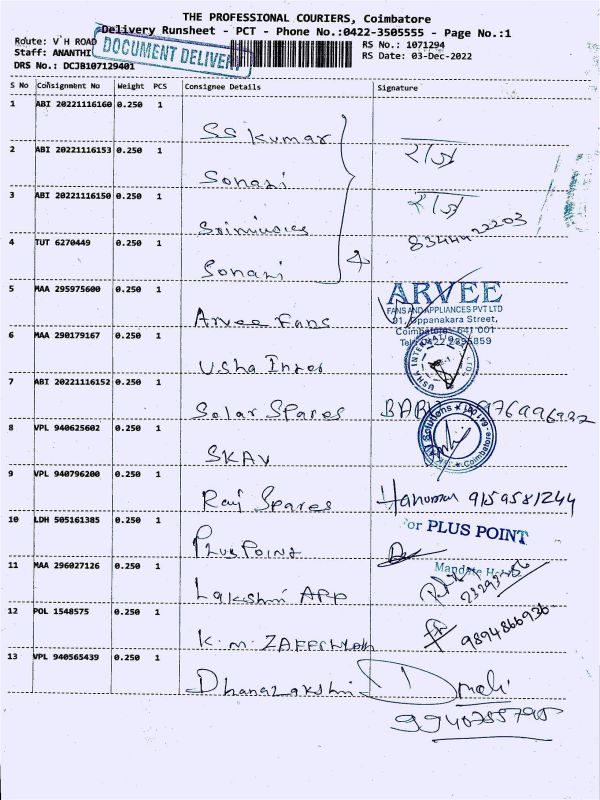 THE PROFESSIONAL COURIERS, Coimbatore
Delivery Runsheet - PCT - Phone No.:0422-3505555 - Page No.:1
Route: V H ROAD
RS No.: 1071294
Staff: ANANTHI
RS Date: 03-Dec-2022
DOCUMENT DELIVERY
DRS No.: DCJB107129401
S No Consignment No Weight PCS Consignee Details Signature
1 ABI 20221116160 0.250 1
SS Kumar
2 ABI 20221116153 0.250 1
Sonani
3 ABI 20221116150 0.250 1
8344422203
4 TUT 6270449 0.250 1
Sonani
5 MAA 295975600 0.250 1
ARVEE
FANS AND APPLIANCES PVT LTD
Oppanakara Street,
Coimbatore - 641 001
Arvee Fans
6 MAA 290179167 0.250 1
USHA INTERNATIONAL LTD
Usha Inter
7 ABI 20221116152 0.250 1
Solar Spares BABU
8 VPL 940625602 0.250 1
Solutions
Coimbatore
SKAV
9 VPL 940796200 0.250 1
Raj Spares Hanuman 9159581244
10 LDH 505161385 0.250 1
For PLUS POINT
Plus Point
11 MAA 296027126 0.250 1
Lakshmi APP
12 POL 1548575 0.250 1
9894866936
K.M.
13 VPL 940565439 0.250 1
Dhanalakshmi